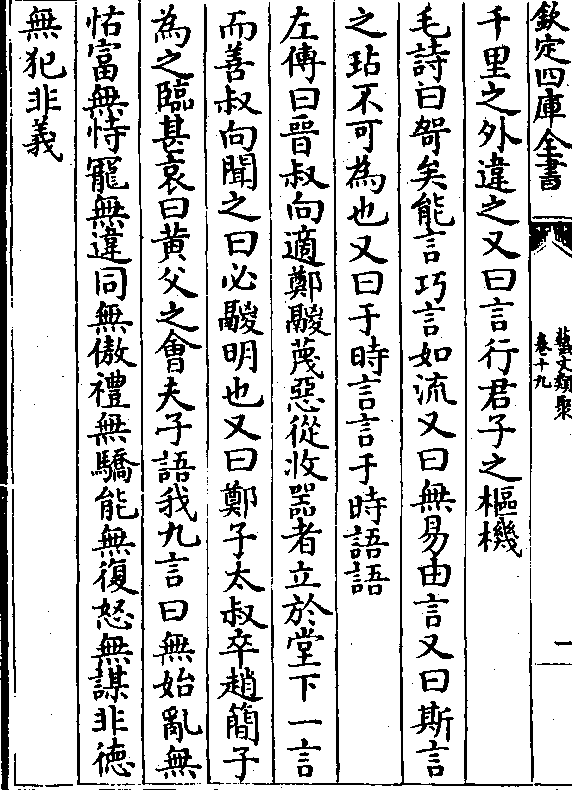 欽定四庫全書
藝文類聚
卷十九
一
千里之外違之又曰言行君子之樞機
毛詩曰哿矣能言巧言如流又曰無易由言又曰斯言
之玷不可為也又曰于時言言于時語語
左傳曰晉叔向適鄭鬷蔑惡從收器者立於堂下一言
而善叔向聞之曰必鬷明也又曰鄭子太叔卒趙簡子
為之臨甚哀曰黃父之會夫子語我九言曰無始亂無
怙富無恃寵無違同無傲禮無驕能無復怒無謀非德
無犯非義